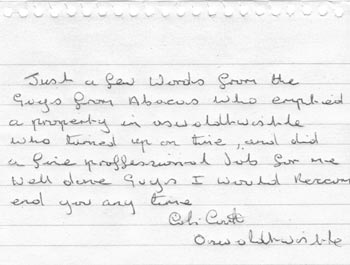 Just a few words from the
Guys from Abacus who emptied
a property in oswaldtwistle
who turned up on time, and did
a fine proffessional Job for me
Well done Guys I would Reccom
end you any time
Oswaldtwistle